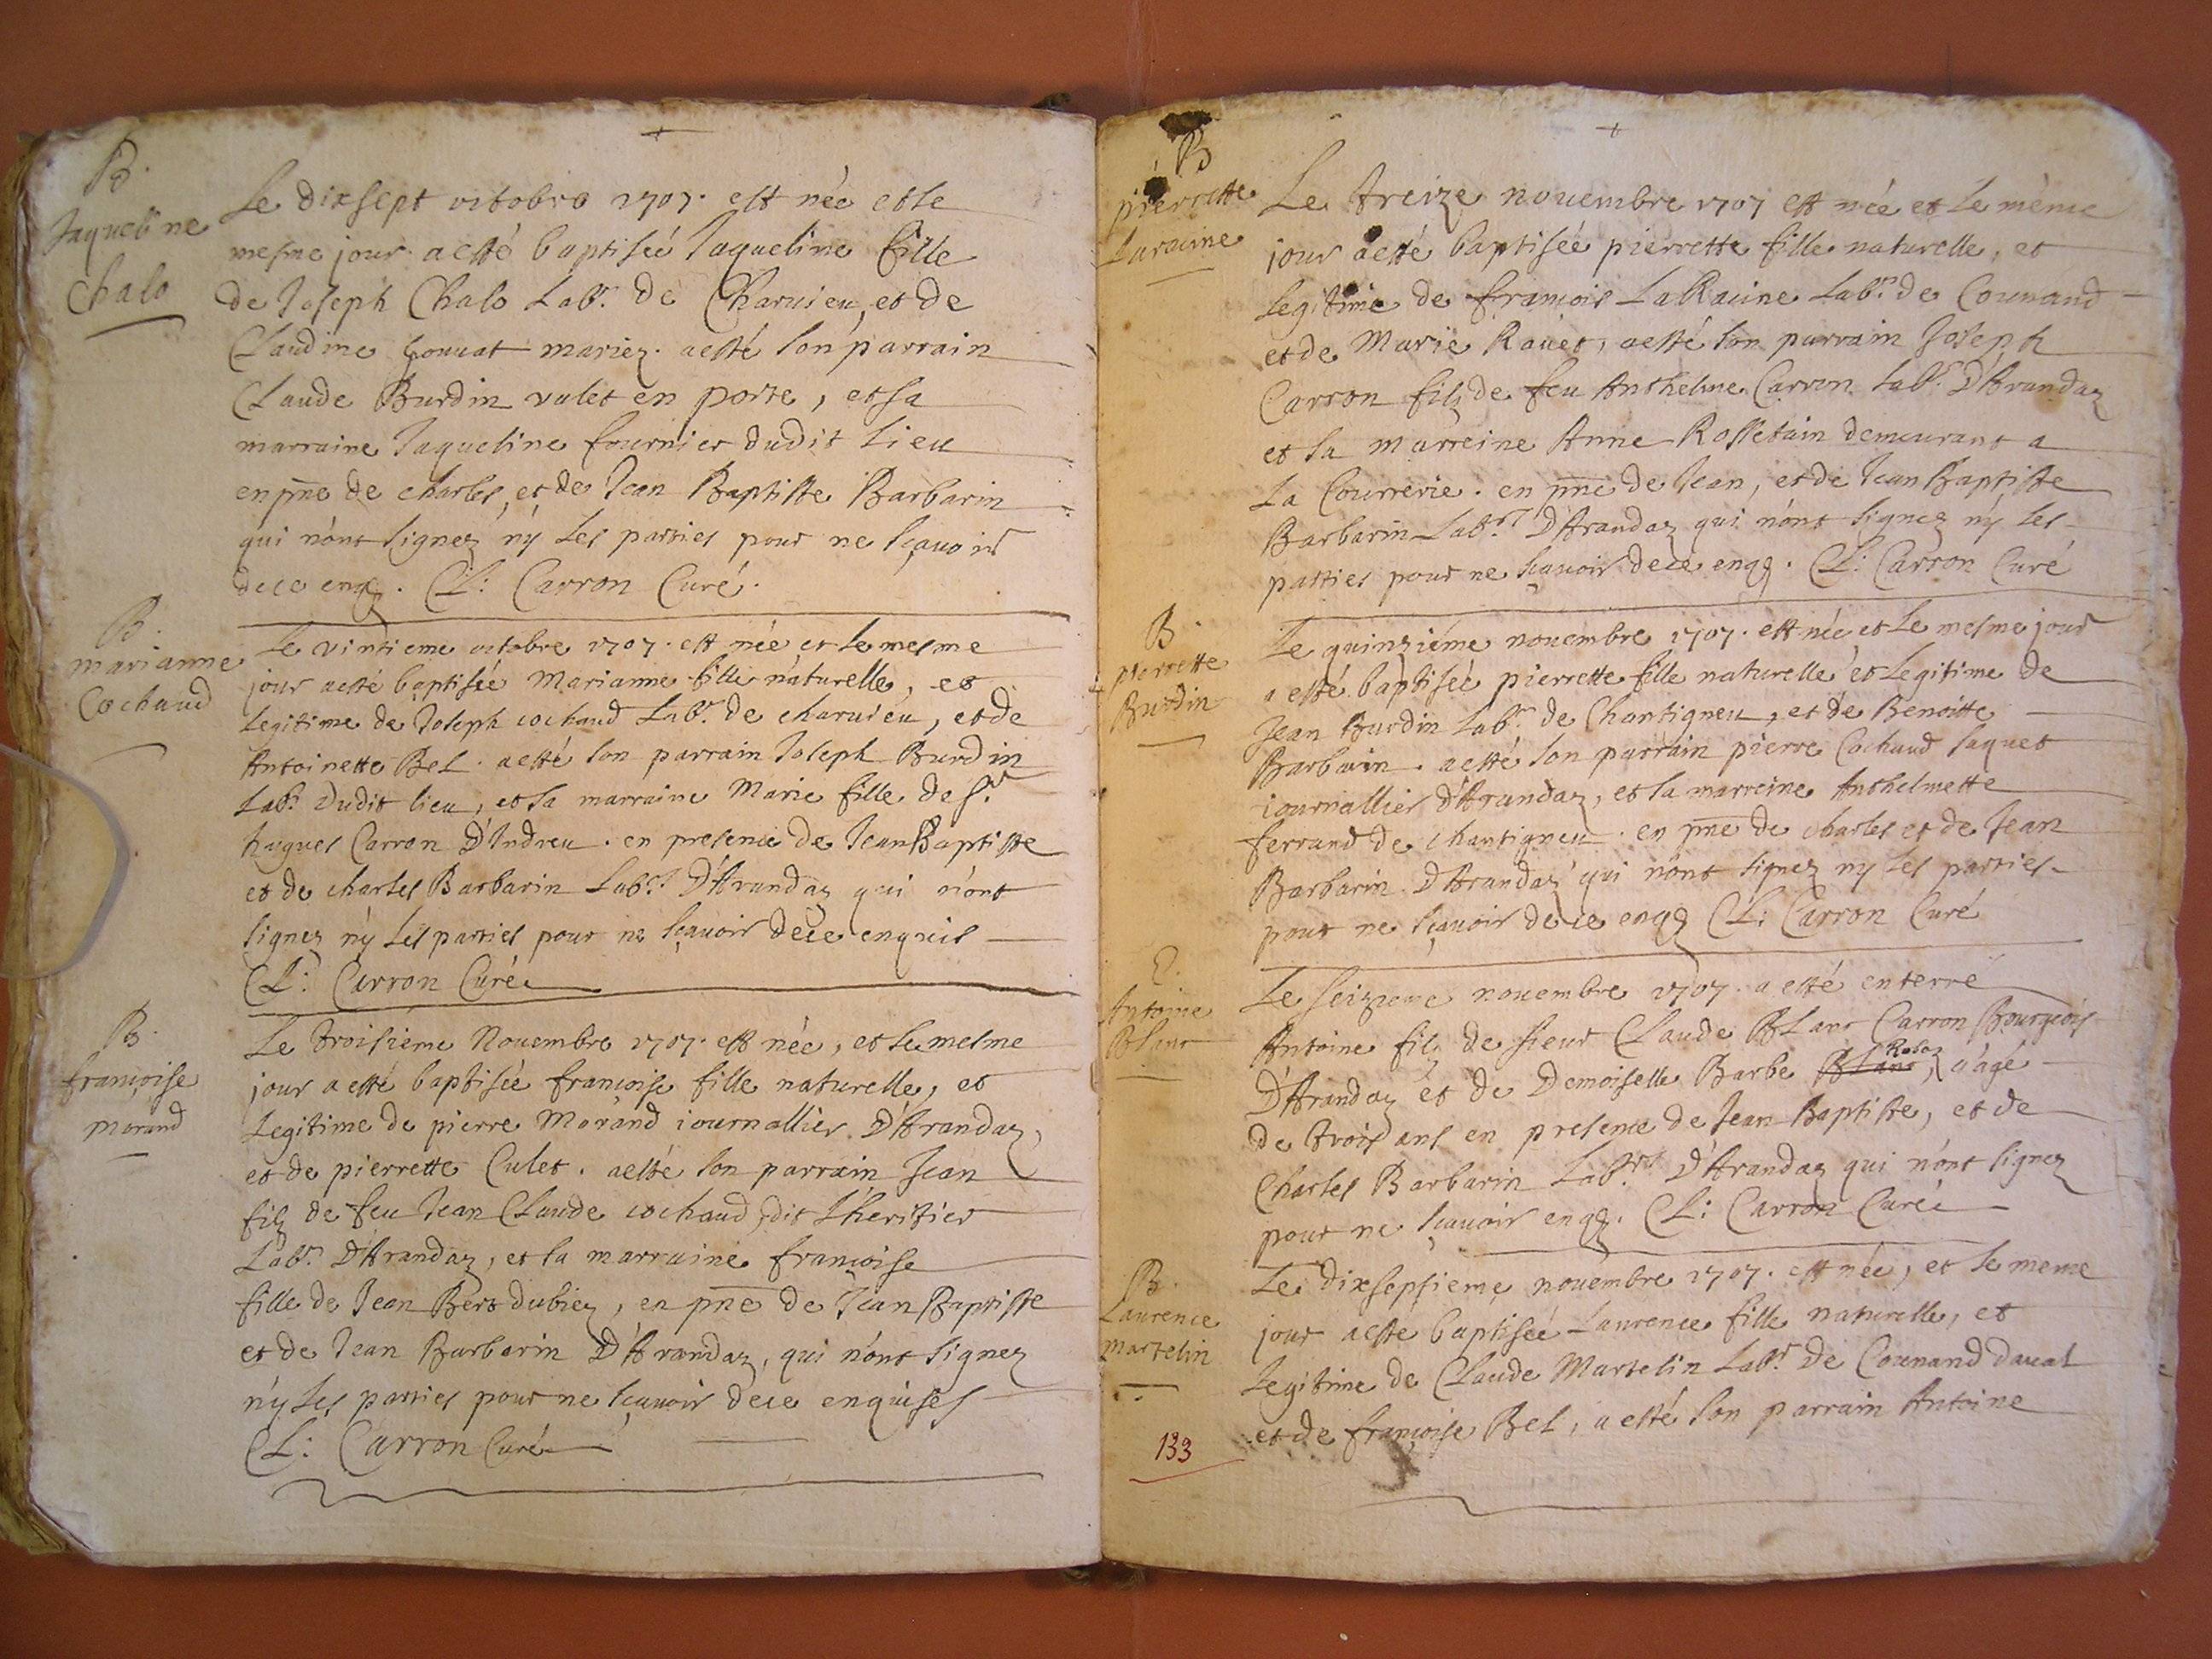 B.
Jaqueline
Chalo
Le dixsept octobre 1707. est née et le
mesme jour a esté baptiseé Jaqueline fille
de Joseph Chalo Labr. de Charuieu, et de
Claudine Gouuat mariez. a esté son parrain
Claude Burdin valet en porte, et sa
marraine Jaqueline fournier dudit Lieu
en pn̄e de charles, et de Jean Baptiste Barbarin
qui n'ont signez n'y Les parties pour ne sçauoir
de ce enq. Cl: Carron Curé.
B.
marianne
Cochaud
Le vintieme octobre 1707. est née et le mesme
jour a esté baptiseé Marianne fille naturelle, et
Legitime de Joseph cochaud Labr. de charuieu, et de
Antoinette Bel. a esté son parrain Joseph Burdin
Labr. dudit lieu, et sa marraine Marie fille de sr
hugues Carron D'Indreu. en presence de Jean Baptiste
et de charles Barbarin Labrs D'Arandaz qui n'ont
signez n'y Les parties pour ne sçauoir de ce enquis
Cl: Carron Curé
B.
françoise
morand
Le troisieme Nouembre 1707. est née, et le mesme
jour a esté baptiseé françoise fille naturelle, et
Legitime de pierre Morand iournallier D'Arandaz,
et de pierrette Culet. a esté son parrain Jean
filz de feu Jean Claude cochaud, dit L'heritier
Labr. D'Arandaz, et sa marraine françoise
fille de Jean Bert dubiez, en pn̄e de Jean Baptiste
et de Jean Barbarin D'Arandaz, qui n'ont signez
n'y Les parties pour ne sçauoir de ce enquises
Cl: Carron Curé
B
pierrette
Laracine
Le treize nouembre 1707 est née et le même
jour a esté baptiseé pierrette fille naturelle, et
legitime de françois LaRacine Labr. de Counand
et de Marie Rauet, a esté son parrain Joseph
Carron filz de feu Anthelme Carron Labr. D'Arandaz
et sa marreine Anne Rossetain demeurant a
La Courrerie. en pn̄e de Jean, et de Jean Baptiste
Barbarin Labrs D'Arandaz qui n'ont signez n'y Les
parties pour ne sçauoir de ce enqq. Cl: Carron Curé
B.
pierrette
Burdin
Le quinziéme nouembre 1707. est née et Le mesme jour
a esté baptiseé pierrette fille naturelle et Legitime de
Jean Burdin Labr. de Chantigneu, et de Benoitte
Barbarin. a esté son parrain pierre Cochaud Jaquet
iournallier D'Arandaz, et sa marreine Anthelmette
ferrand de chantigneu. en pn̄e de charles et de Jean
Barbarin D'Arandaz qui n'ont signez ny Les parties
pour ne sçauoir de ce enqq Cl: Carron Curé
E.
Antoine
Blanc
Le seizieme nouembre 1707. a esté enterré
Antoine filz de sieur Claude Blanc Carron Bourgeois
D'Arandaz et de Demoiselle Barbe Blanc Roboz, a'agé
de trois ans en presence de Jean Baptiste, et de
Charles Barbarin Labrs D'Arandaz qui n'ont signez
pour ne sçauoir enqq. Cl: Carron Curé
B.
Laurence
martelin
Le dixseptieme nouembre 1707. est née, et le meme
jour a esté baptiseé Laurence fille naturelle, et
Legitime de Claude Martelin Labr. de Counand daual
et de françoise Bel, a esté son parrain Antoine
133